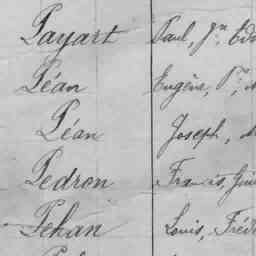 Payart Paul, Jn, Edo
Péan Eugène, Pre, 
Péan Joseph, 
Pedron Francis, Gui
Pehan Louis, Fréd